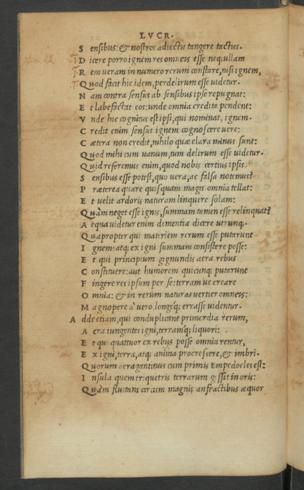 LVCR.
Sensibus: & nostros adiectu tangere tactus.
Dicere porro ignem res omneis esse neq; ullam
Rem ueram in numero rerum constare, nisi ignem,
Quod facit hic idem, perdelirum esse uidetur.
Nam contra sensus ab sensibus ipse repugnat:
Et labefactat eos: unde omnia credita pendent:
Vnde hic cognitus est ipsi, quem nominat, ignem.
Credit enim sensus ignem cognoscere uere:
Cætera non credit, nihilo quæ clara minus sunt:
Quod mihi cum uanum, tum delirum esse uidetur.
Quid referemus enim, quod nobis certius ipsis
Sensibus esse potest, quo uera, ac falsa notemus?
Præterea quare quisquam magis omnia tollat:
Et uelit ardoris naturam linquere solam:
Quàm neget esse ignis, summam tamen esse relinquat?
Aequa uidetur enim dementia dicere utrunq;.
Quapropter qui materiem rerum esse putarunt
Ignem: atq; ex igni summam consistere posse:
Et qui principium gignundis aera rebus
Constituere: aut humorem quicunq; putarunt
Fingere res ipsum per se: terram ue creare
Omnia: & in rerum naturas uertier omneis:
Magnopere à uero longeq; errasse uidentur.
Adde etiam, qui conduplicant primordia rerum,
Aera iungentes igni, terramq; liquori:
Et qui quattuor ex rebus posse omnia rentur,
Ex igni, terra, atq; anima procrescere, & imbri.
Quorum acragantinus cum primis Empedocles est:
Insula quem triquetris terrarum gessit in oris:
Quàm fluitans circum magnis anfractibus æquor